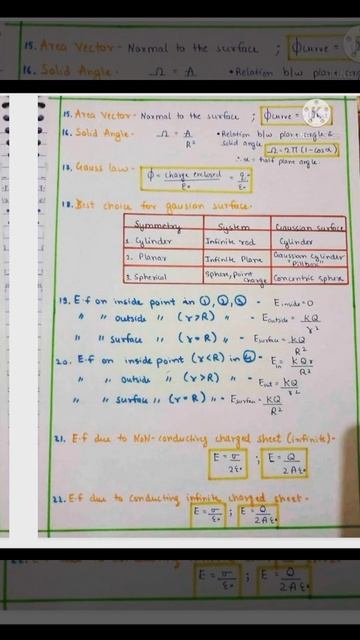 15. Area Vector - Normal to the surface ; ϕcurve =
16. Solid Angle - Ω = A • Relation b/w plane
15. Area Vector - Normal to the surface ; ϕcurve =
16. Solid Angle - Ω = A/R² • Relation b/w plane angle &
solid angle Ω = 2π(1-cosα)
∴ α = half plane angle
17. Gauss law - ϕ = charge enclosed/ε₀ = q/ε₀
18. Best choice for gausian surface -
Symmetry System Gaussian surface
1. Cylinder Infinite rod Cylinder
2. Planar Infinite Plane Gaussian Cylinder "Pillbox"
3. Spherical Sphere, Point charge Concentric sphere
19. E.f on inside point in ①, ②, ③ - E inside = 0
" " outside " (r>R) " - E outside = KQ/r²
" " surface " (r=R) " - E surface = KQ/R²
20. E.f on inside point (r<R) in ④ - E in = KQr/R²
" " outside " (r>R) " - E out = KQ/r²
" " surface " (r=R) " - E surface = KQ/R²
21. E.f due to NoN-conducting charged sheet (infinite) -
E = σ/2ε₀ ; E = Q/2Aε₀
22. E.f due to conducting infinite charged sheet -
E = σ/ε₀ ; E = Q/2Aε₀
E = σ/ε₀ ; E = Q/2Aε₀